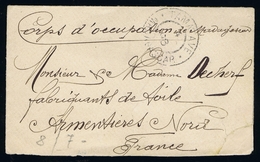 Corps d'occupation de Madagascar
Monsieur & Madame Decherf
fabriquants de toile
Armentières Nord
France